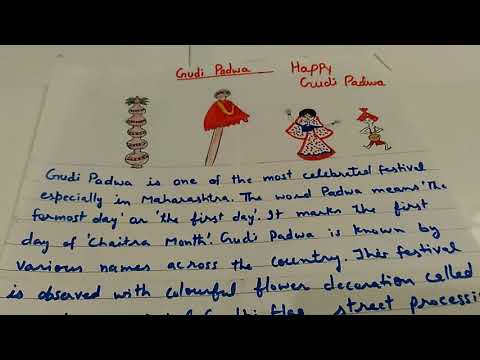 Gudi Padwa Happy
Gudi Padwa
Gudi Padwa is one of the most celebrated festival
especially in Maharashtra. The word Padwa means 'The
formost day' or 'the first day'. It marks the first
day of 'Chaitra Month'. Gudi Padwa is known by
various names across the country. This festival
is observed with colourful flower decoration called
street processi